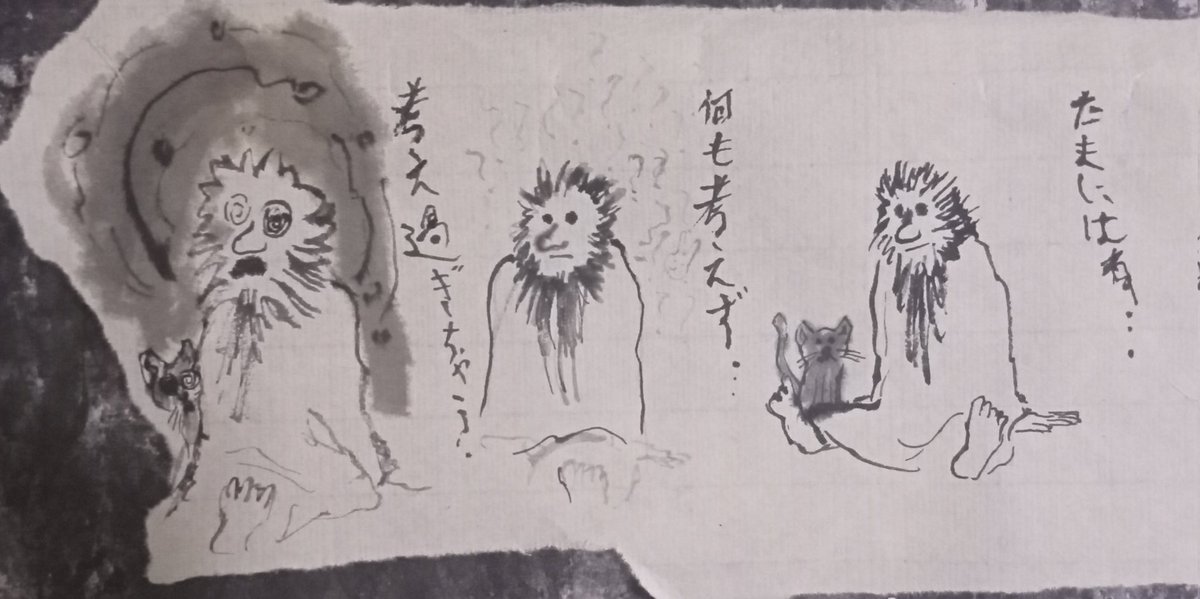 たまにはね…
何も考えず…
考え過ぎちゃう…